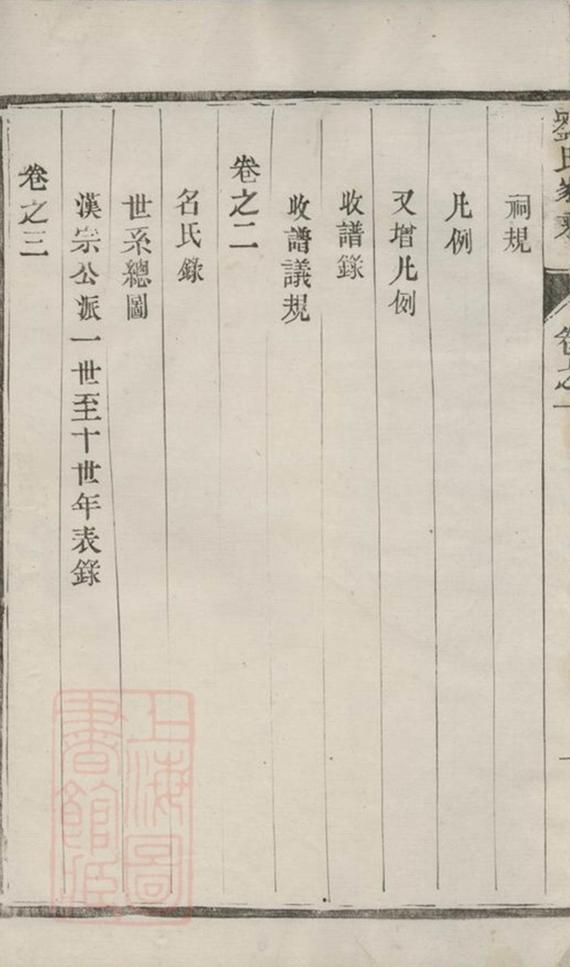 劉氏家乘
卷之一
祠規
凡例
又增凡例
收譜錄
收譜議規
卷之二
名氏錄
世系總圖
漢宗公派一世至十世年表錄
卷之三
上海圖書館藏